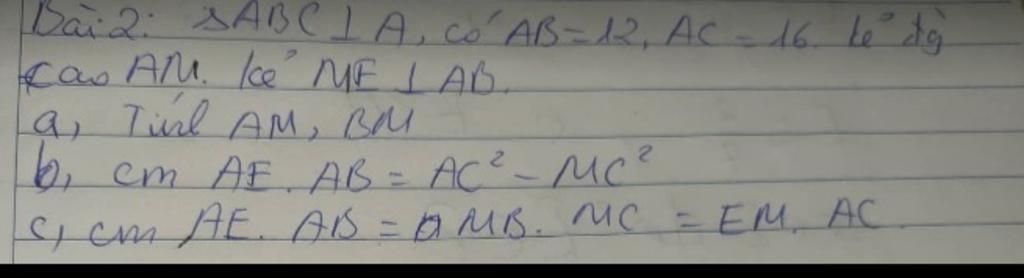 Bài 2: △ABC ⊥ A, có AB = 12, AC = 16. kẻ đg
cao AM. kẻ ME ⊥ AB.
a, Tính AM, BM
b, cm AE. AB = AC² - MC²
c, cm AE. AB = MB. MC = EM. AC.